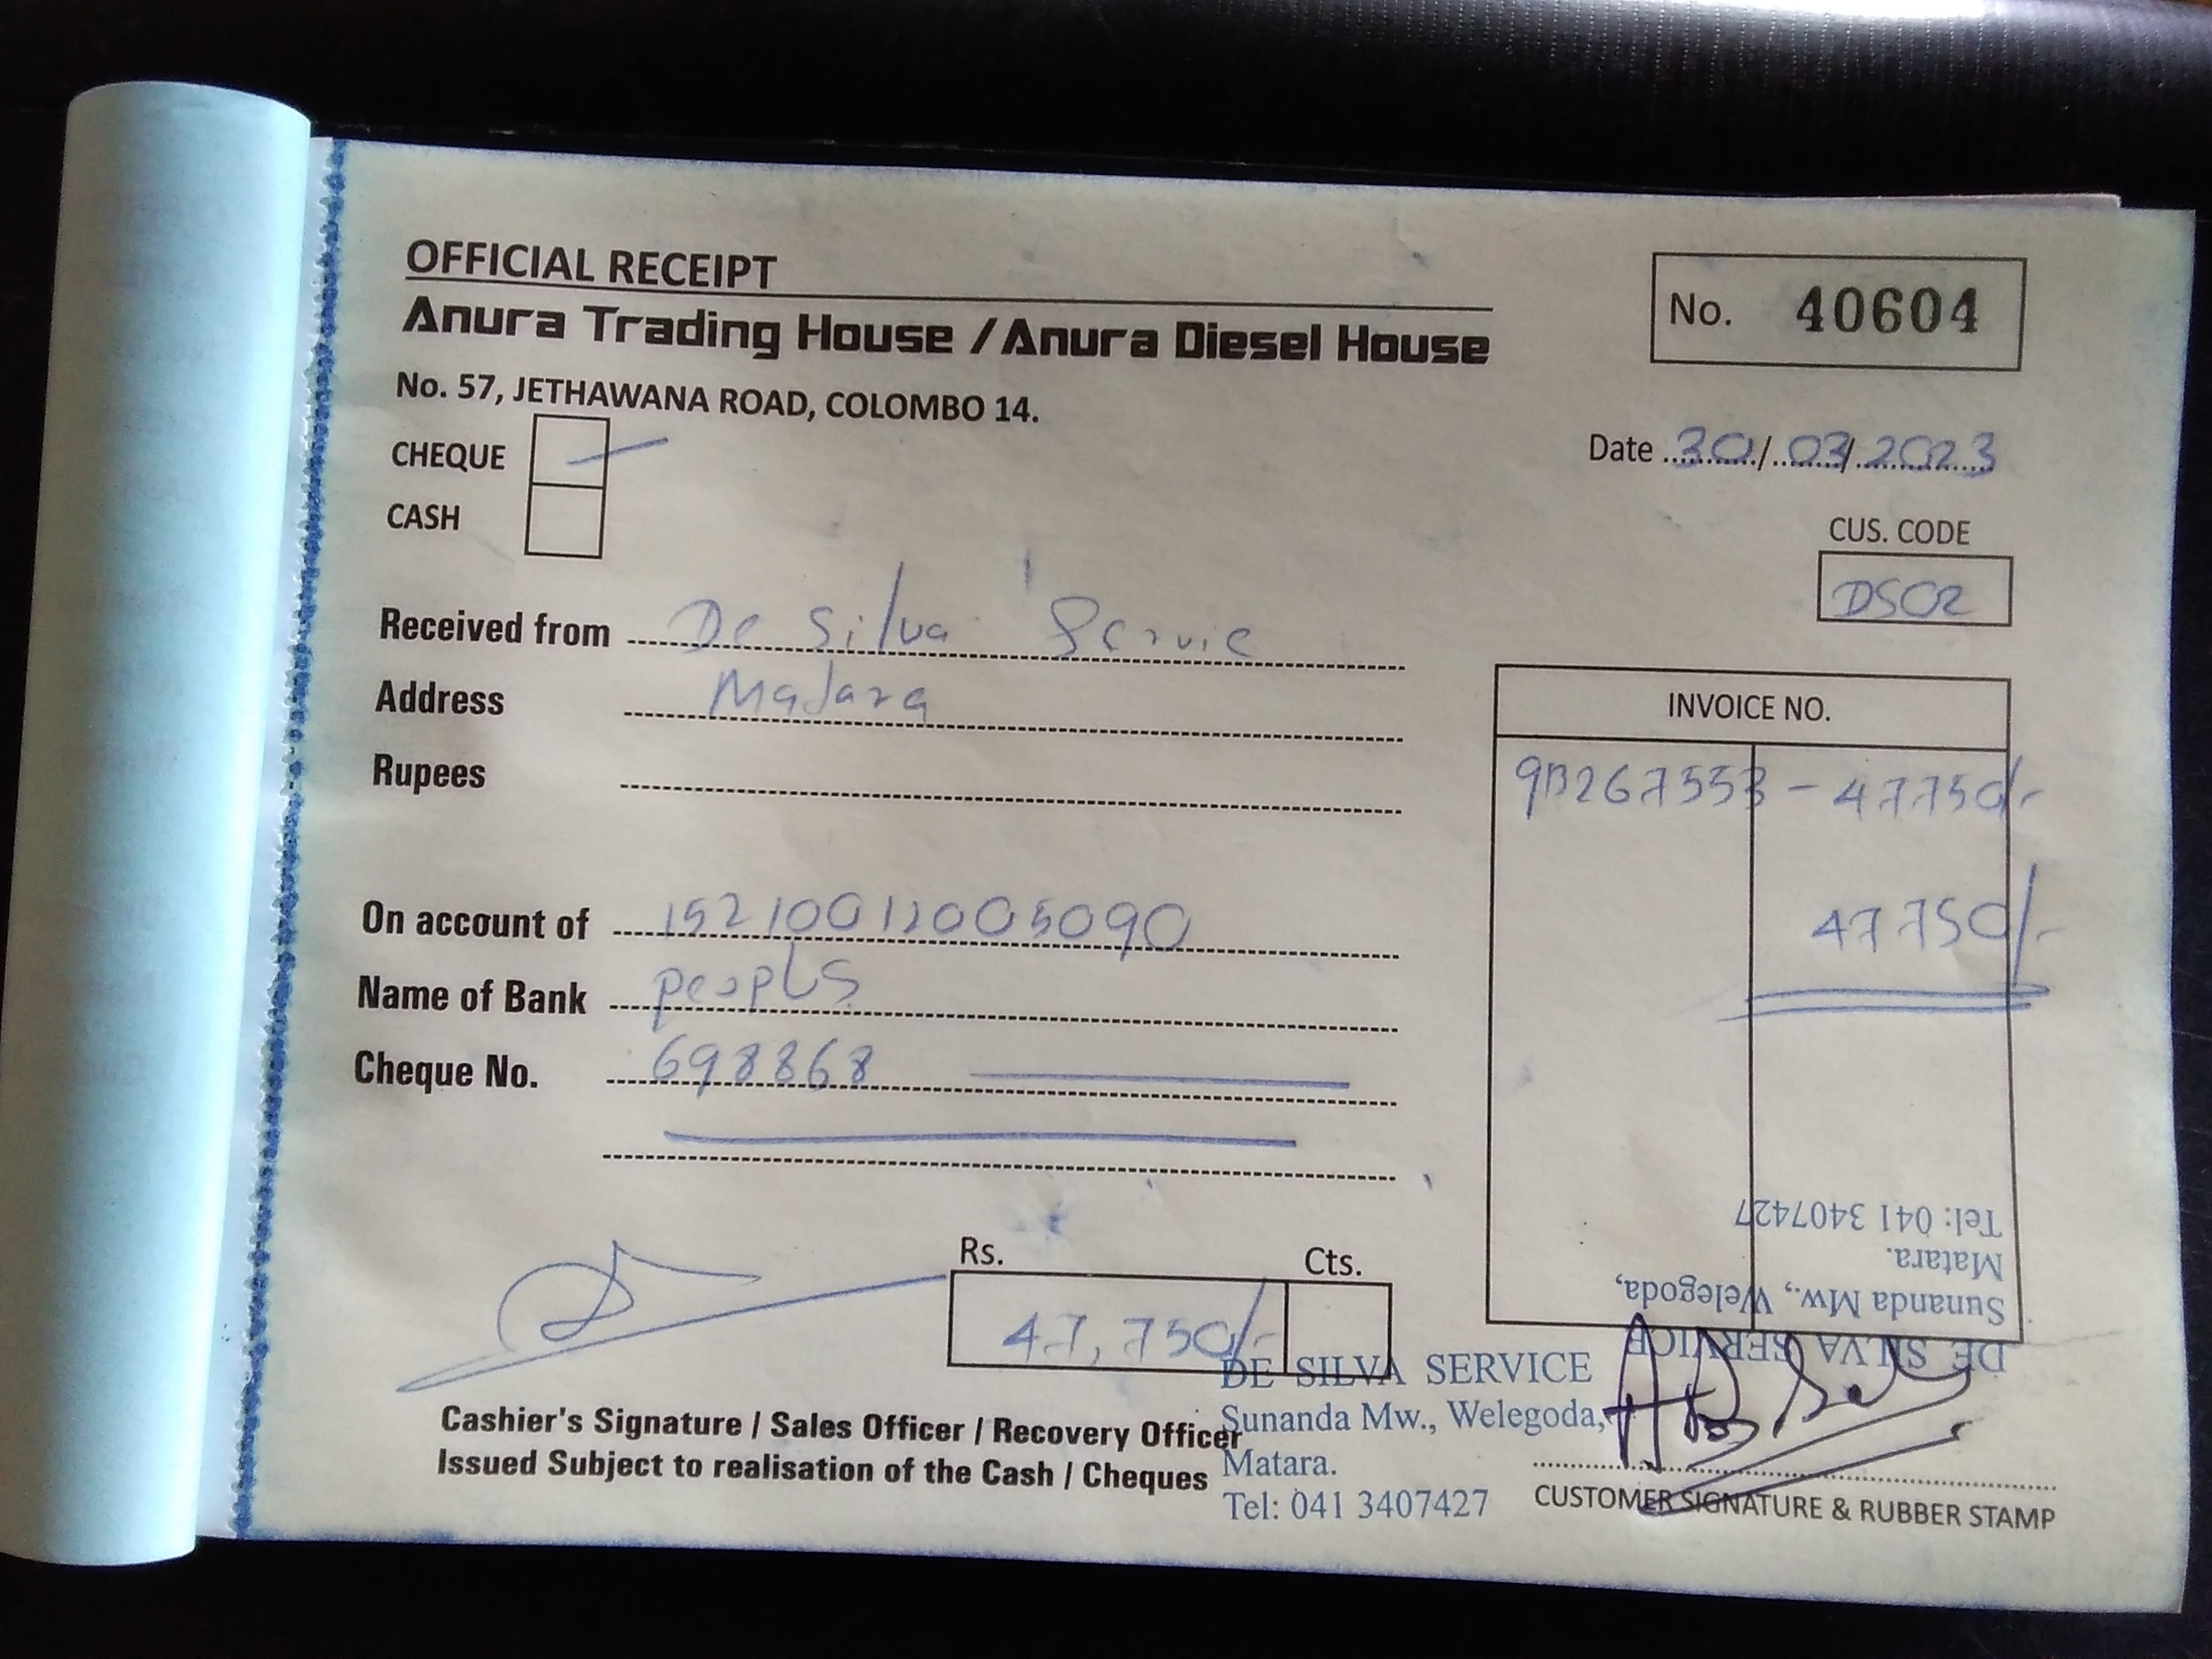 OFFICIAL RECEIPT
No. 40604
Anura Trading House / Anura Diesel House
No. 57, JETHAWANA ROAD, COLOMBO 14.
CHEQUE
Date 30/03/2023
CASH
CUS. CODE
DS02
Received from De Silva Servic
Address Matara
INVOICE NO.
Rupees
9B267553 - 47750/-
On account of 15210012005090
47750/-
Name of Bank peoples
Cheque No. 698868
Tel: 041 3407427
Matara.
Sunanda Mw., Welegoda,
DE SILVA SERVICE
Rs. Cts.
47,750/-
DE SILVA SERVICE
Sunanda Mw., Welegoda,
Matara.
Tel: 041 3407427
Cashier's Signature / Sales Officer / Recovery Officer
Issued Subject to realisation of the Cash / Cheques
CUSTOMER SIGNATURE & RUBBER STAMP